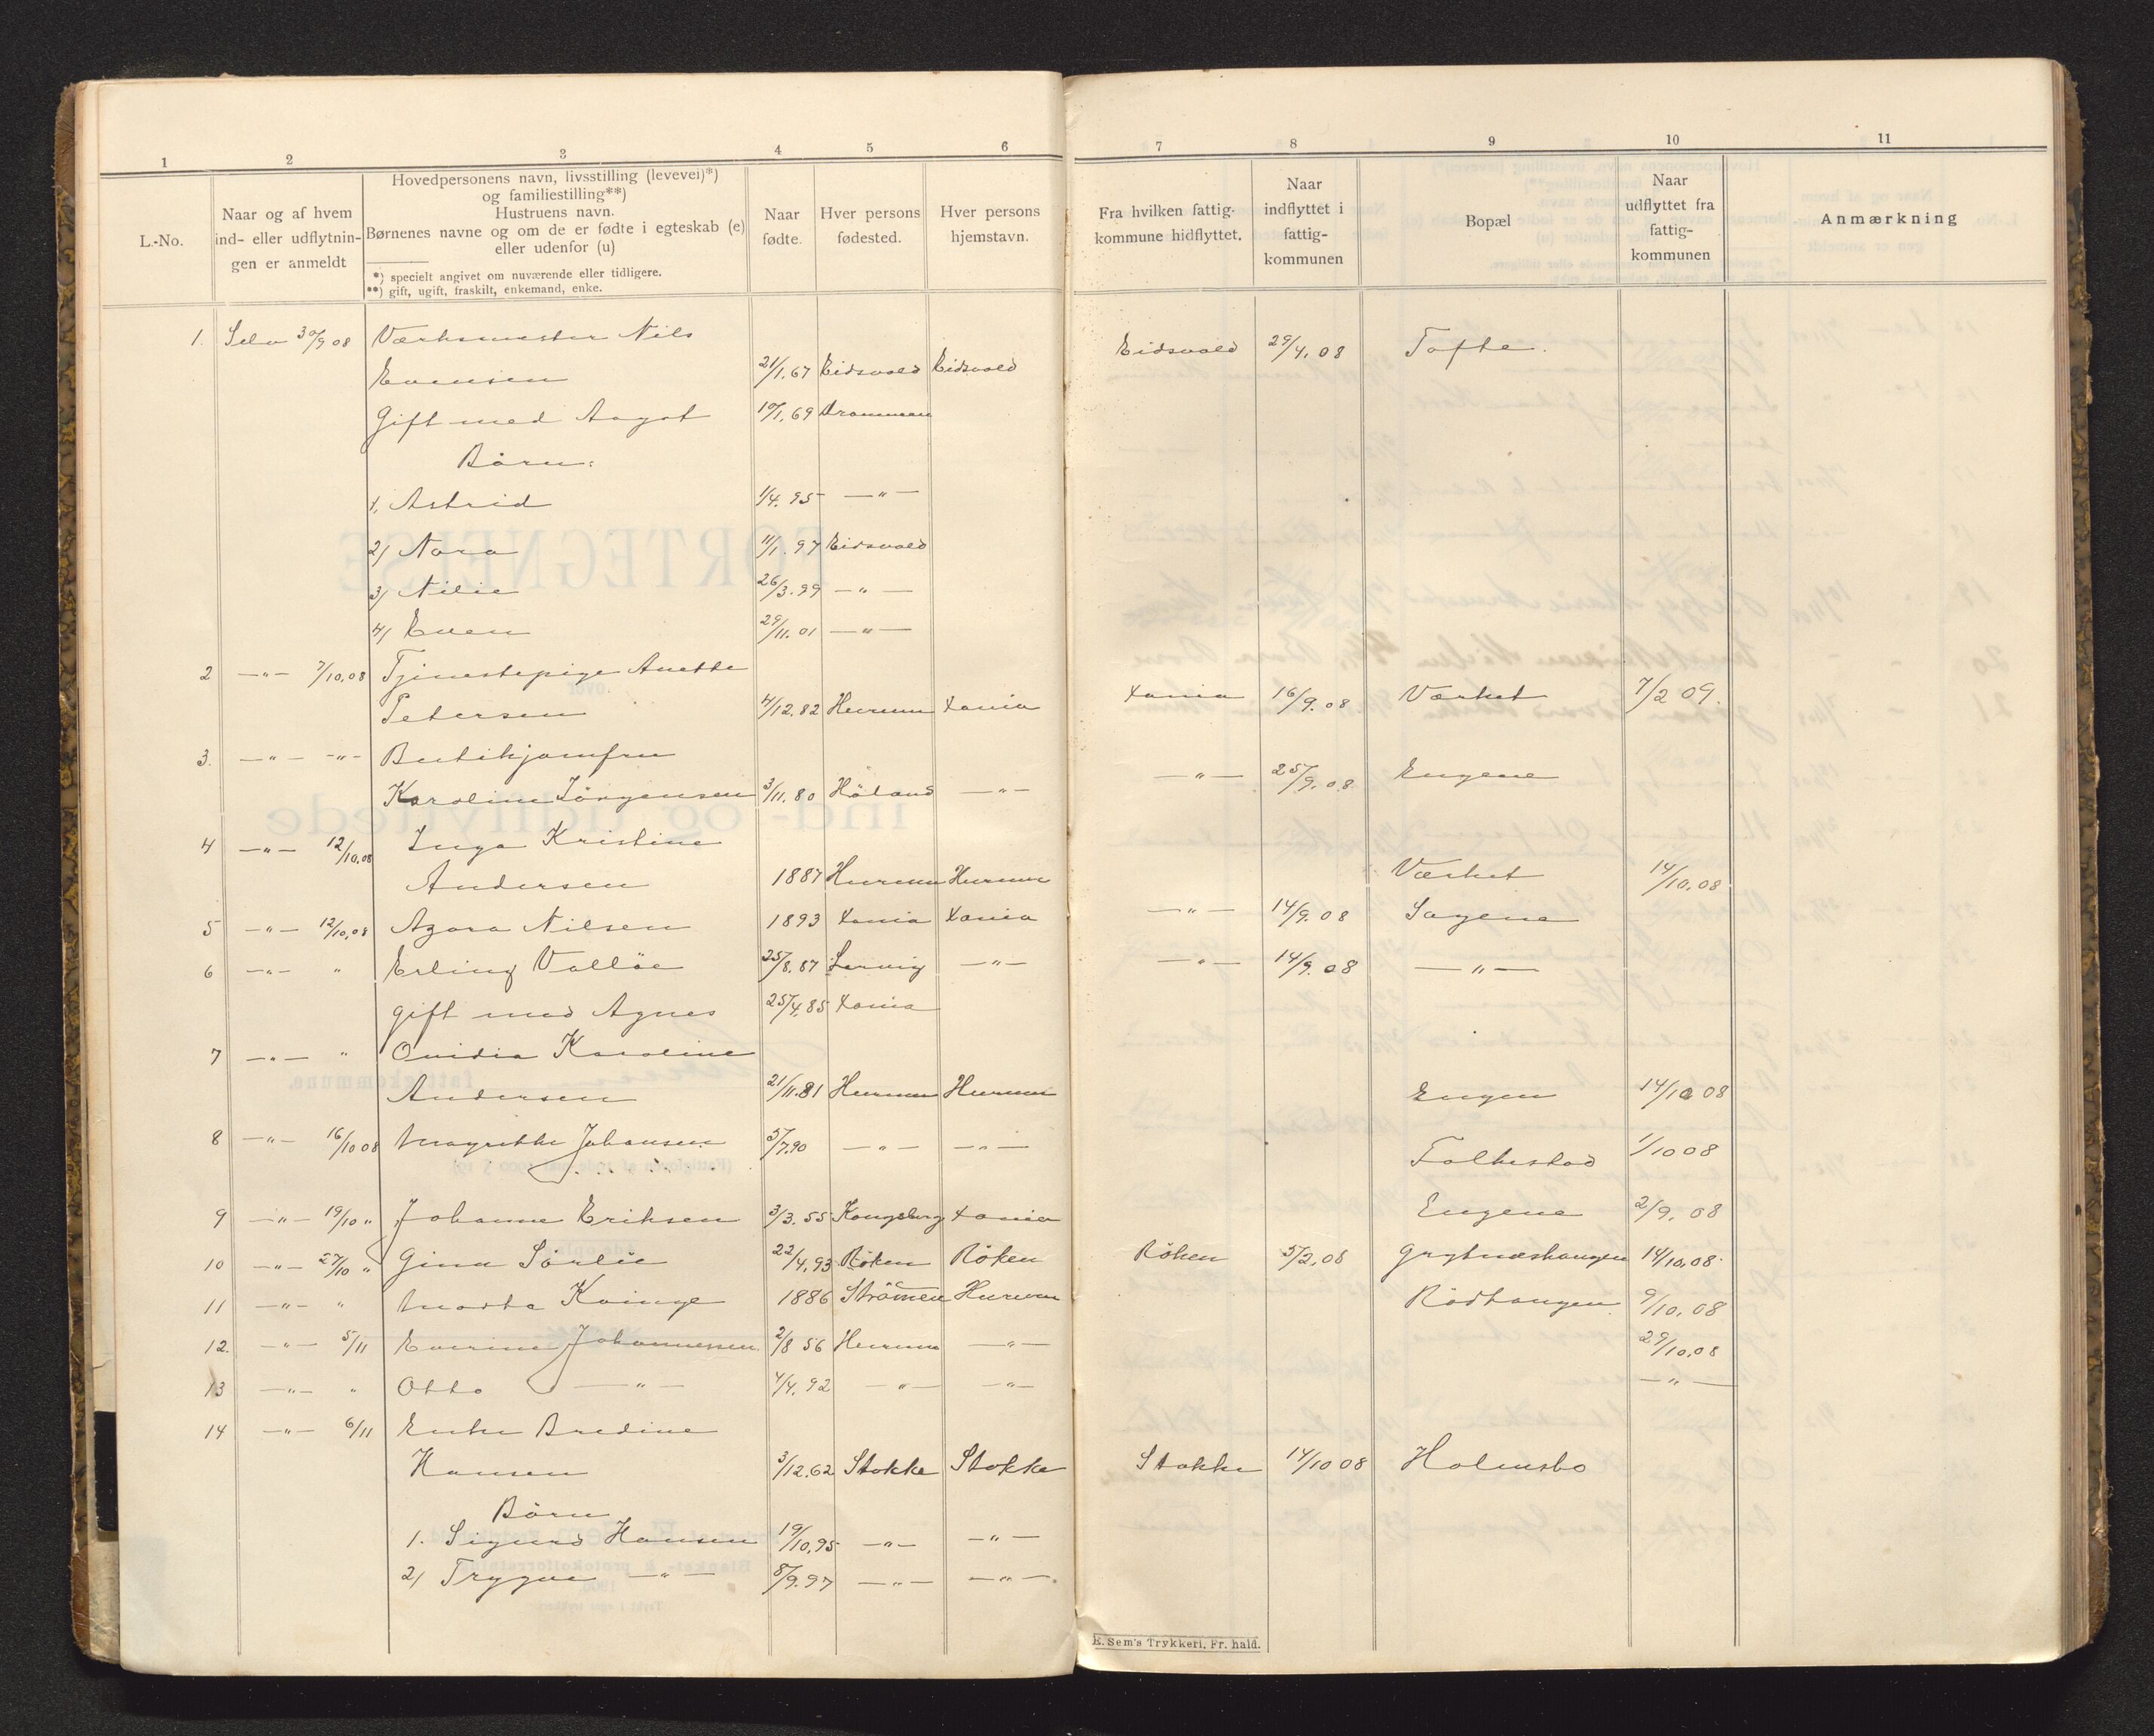 1 2 3 4 5 6 7 8 9 10 11
L.-No.
Naar og af hvem
ind- eller udflytnin-
gen er anmeldt
Hovedpersonens navn, livsstilling (levevei)*)
og familiestilling**)
Hustruens navn.
Børnenes navne og om de er fødte i egteskab (e)
eller udenfor (u)
*) specielt angivet om nuværende eller tidligere.
**) gift, ugift, fraskilt, enkemand, enke.
Naar
fødte.
Hver persons
fødested.
Hver persons
hjemstavn.
Fra hvilken fattig-
kommune hidflyttet.
Naar
indflyttet i
fattig-
kommunen
Bopæl
Naar
udflyttet fra
fattig-
kommunen
Anmærkning
1. Selv 30/9 08 Værksmester Nils
Evensen 21/1.67 Eidsvold Eidsvold Eidsvold 29/4.08 Tofte.
Gift med Aagot 10/1.69 Drammen
Börn:
1, Astrid 1/4.95 —"—
2) Nora 11/1.97 Eidsvold
3) Nilie 26/3.99 —"—
4) Even 29/11.01 —"—
2 —"— 7/10.08 Tjenestepige Anette
Petersen 4/12.82 Hurum Xania Xania 16/9.08 Værket 7/2 09.
3. —"— —"— Butikjomfru
Karoline Jörgensen 3/11.80 Höland —"— —"— 25/9.08 Engene
4 —"— 12/10.08 Inga Kristine
Andersen 1887 Hurum Hurum Værket 14/10.08
5 —"— 12/10.08 Azora Nilsen 1893 Xania Xania —"— 14/9.08 Sagene
6 —"— " Erling Vallöe 25/8.87 Larvig —"— —"— 14/9.08 —"—
gift med Agnes 25/4.85 Xania
7 —"— " Ovidia Karoline
Andersen 21/11.81 Hurum Hurum Engen 14/10 08
8 —"— 16/10 08 Magrethe Johansen 5/7.90 —"— —"— Folkestad 1/10 08
9 —"— 19/10 " Johanne Eriksen 3/3.55 Kongsberg Xania Engene 2/9.08
10 —"— 27/10 " Gina Sörlie 22/4.93 Röken Röken Röken 5/2.08 Grytneshaugen 14/10.08
11 —"— " Marta Kninge 1886 Strömmen Hurum Rödtangen 9/10.08
12. —"— 5/11 Everine Johannessen 2/8 56 Hurum —"— 29/10.08
13 —"— " Otto —"— 4/4.92 —"— —"— —"—
14 —"— 6/11 Enke Bredine
Hansen 3/12.62 Stokke Stokke Stokke 14/10 08 Holmsbo
Börn
1. Sigurd Hansen 19/10.95 —"— —"—
2) Trygve —"— 8/9.97 —"— —"—
E. Sem's Trykkeri, Fr. hald.